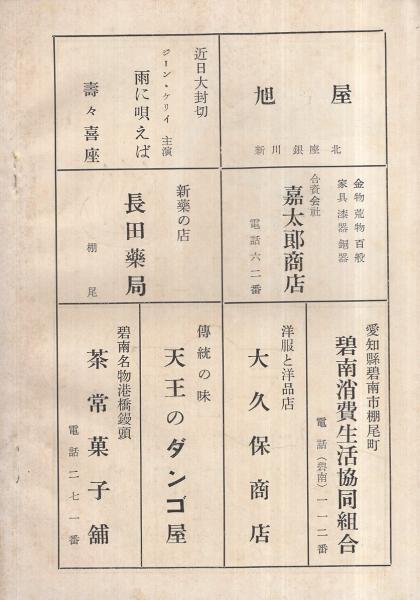 旭屋
新川銀座北
近日大封切
ジーン・ケリイ 主演
雨に唄えば
壽々喜座
金物荒物百般
家具漆器銅器
合資会社
嘉太郎商店
電話六二番
新藥の店
長田藥局
棚尾
愛知縣碧南市棚尾町
碧南消費生活協同組合
電話(碧南)一一二番
洋服と洋品店
大久保商店
傳統の味
天王のダンゴ屋
碧南名物港橋饅頭
茶常菓子舗
電話二七一番